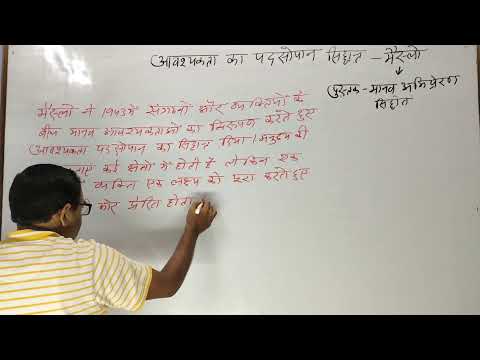 आवश्यकता का पदसोपान सिद्धांत - मैस्लो
पुस्तक - मानव अभिप्रेरणा
सिद्धांत
मैस्लो ने 1943 में संगठनों और व्यक्तियों के
बीच मानव आवश्यकताओं का निरूपण करते हुए
आवश्यकता पदसोपान का सिद्धांत दिया। मनुष्य की
कई क्षेत्रों में होती हैं लेकिन एक
व्यक्ति एक लक्ष्य को पूरा करते हुए
की ओर प्रेरित होता